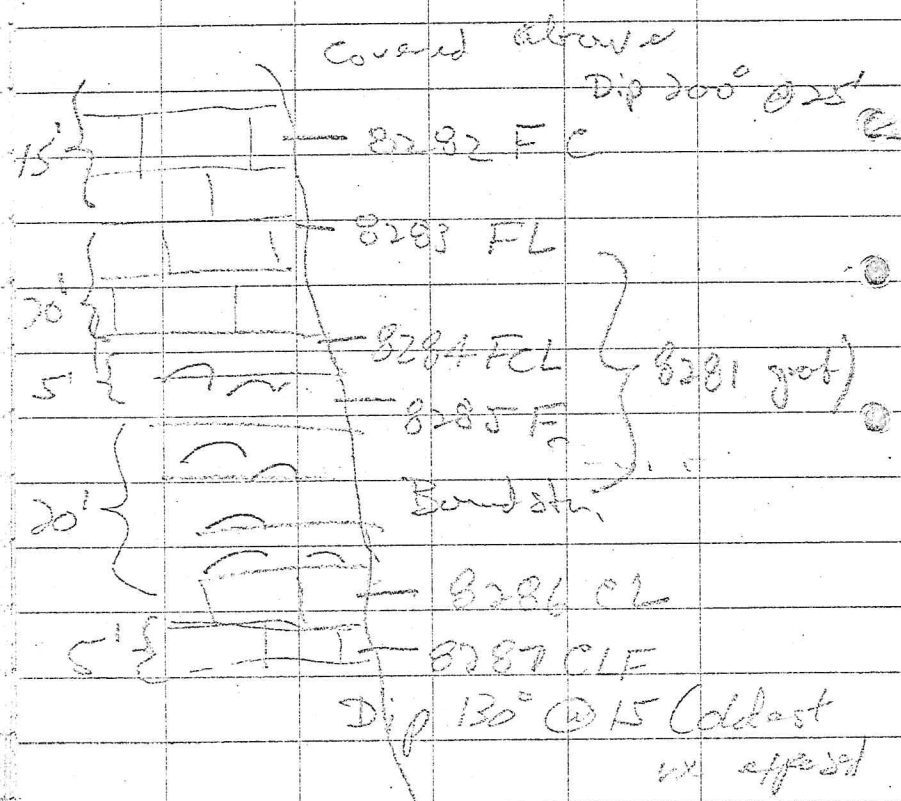 Covered above
Dip 200° @ 25'
15'
8282 FC
8283 FL
20'
8284 FCL
8281
5'
8285 F
20'
8286 CL
5'
8287 CLF
Dip 130° @ 15 (oldest
exposed